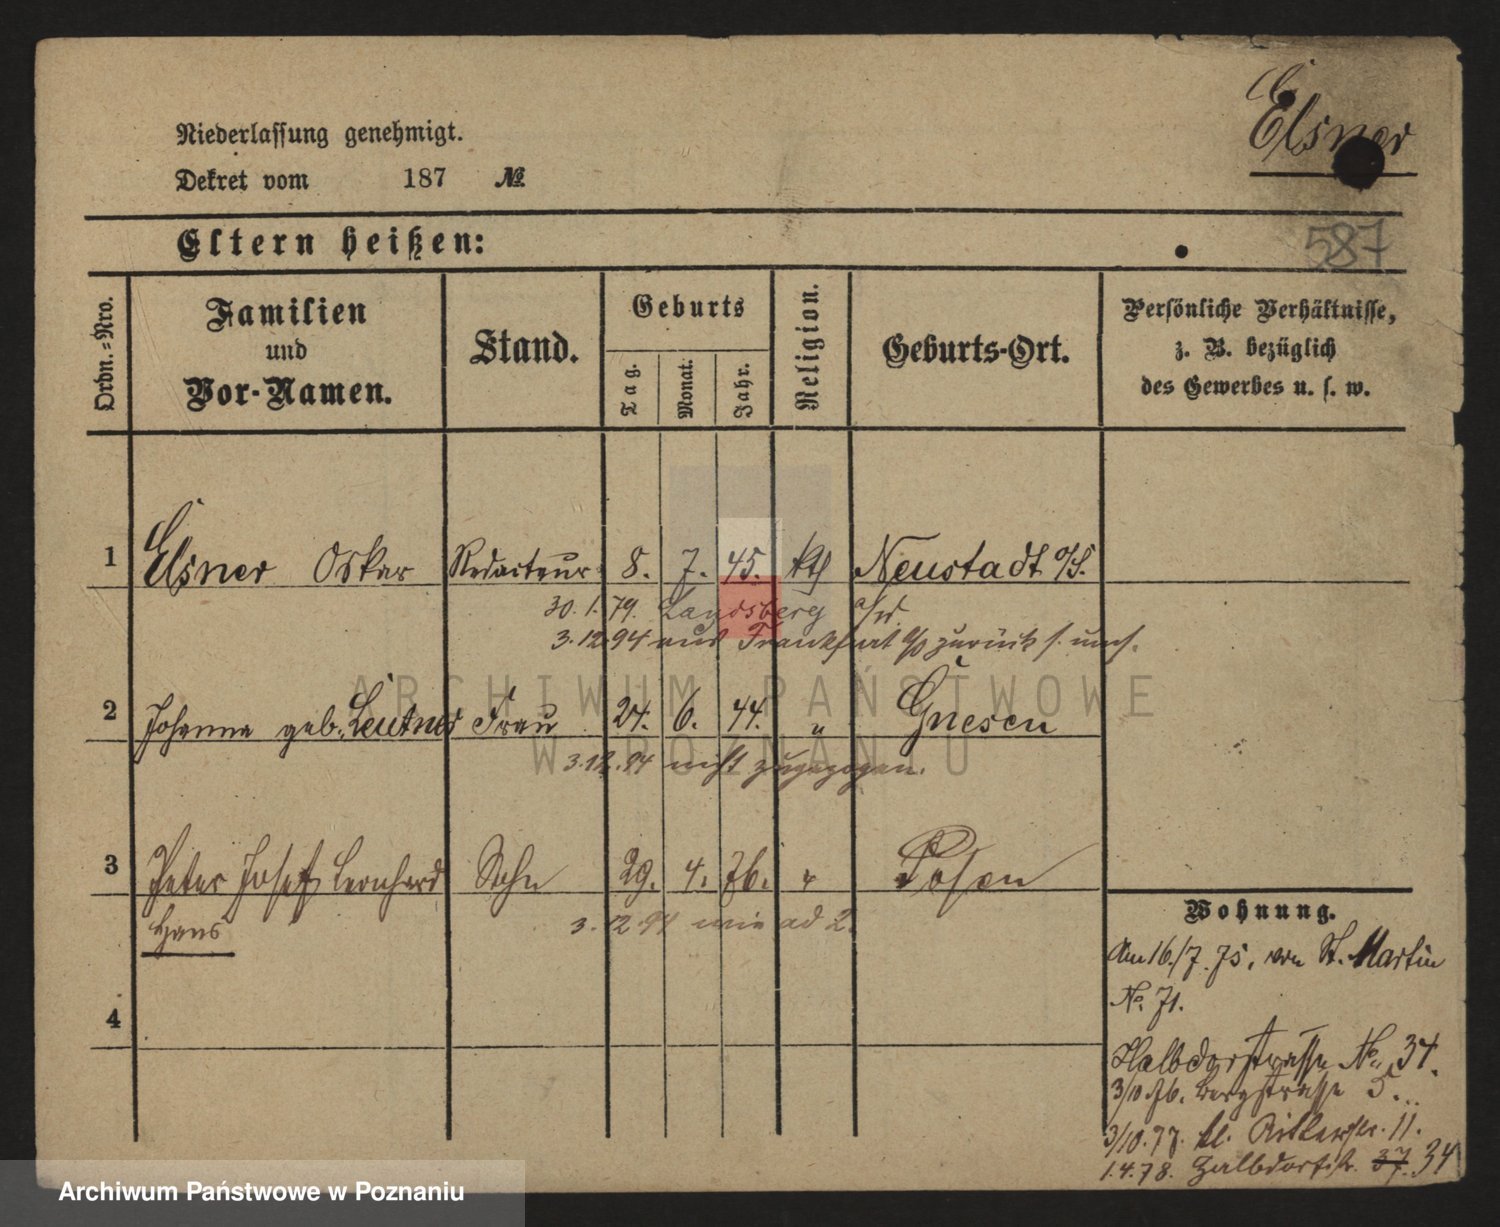 Elsner
Niederlassung genehmigt.
Dekret vom 187 №
587
Eltern heißen:
Ordn.-Nro.
Familien
und
Vor-Namen.
Stand.
Geburts
Tag.
Monat.
Jahr.
Religion.
Geburts-Ort.
Persönliche Verhältnisse,
z. B. bezüglich
des Gewerbes u. s. w.
1 Elsner Oskar Redacteur 8. 7. 45. kth Neustadt o/S.
30. 1. 79. Landsberg a/W.
3. 12. 94 aus Frankfurt a/O zurück s. ums.
2 Johanna geb. Leutner Frau 24. 6. 44. " Gnesen
3. 12. 94 nicht zugezogen.
3 Peter Josef Leonhard Sohn 29. 4. 76. " Posen
Hans
3. 12 94 wie ad 2.
4
Wohnung.
Am 16./7. 75, von St. Martin
No. 71.
Halbdorfstrasse No. 34.
3/10.76. Bergstrasse 5.
3/10.77. kl. Ritterstr. 11.
1.4.78. Halbdorfstr. 37. 34
ARCHIWUM PAŃSTWOWE
W POZNANIU
Archiwum Państwowe w Poznaniu